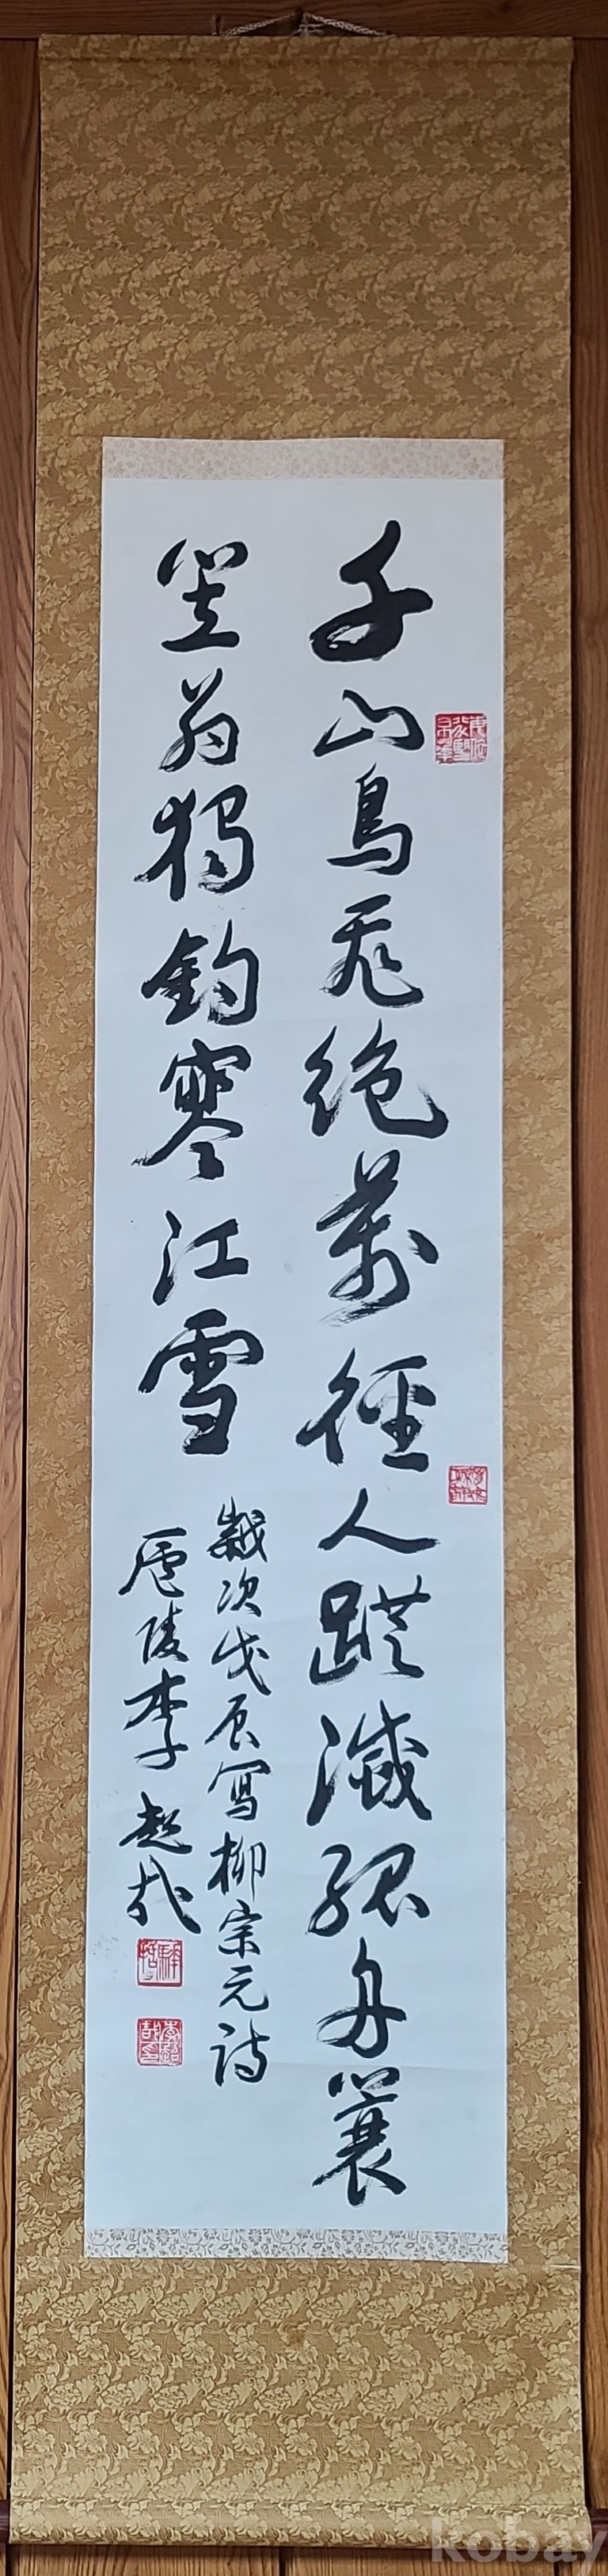 千山鳥飛絕萬徑人蹤滅孤舟蓑
笠翁獨釣寒江雪
歲次戊辰寫柳宗元詩
廬陵李超哉
kobay